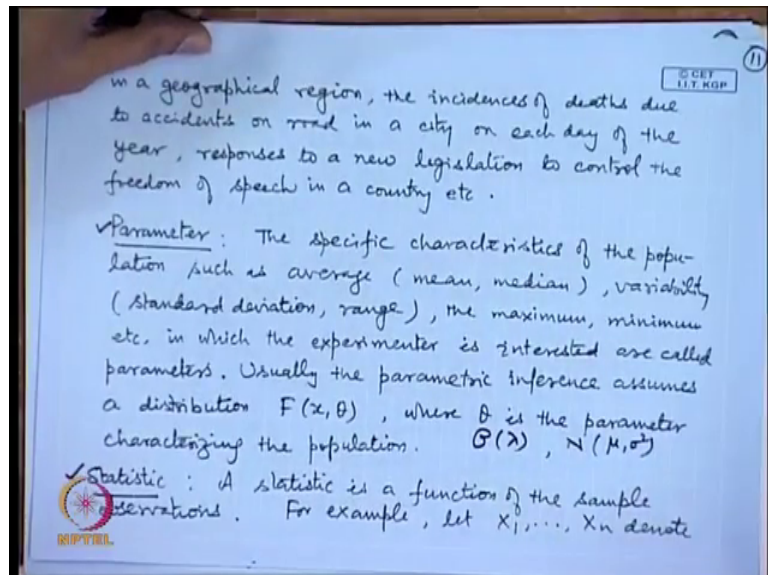 11
© CET
I.I.T. KGP
in a geographical region, the incidences of deaths due
to accidents on road in a city on each day of the
year, responses to a new legislation to control the
freedom of speech in a country etc.
✓Parameter: The specific characteristics of the popu-
lation such as average (mean, median), variability
(standard deviation, range), the maximum, minimum
etc. in which the experimenter is interested are called
parameters. Usually the parametric inference assumes
a distribution F(x, θ), where θ is the parameter
characterizing the population. P(λ), N(μ,σ²)
✓Statistic: A statistic is a function of the sample
observations. For example, let X₁,..., Xn denote
NPTEL